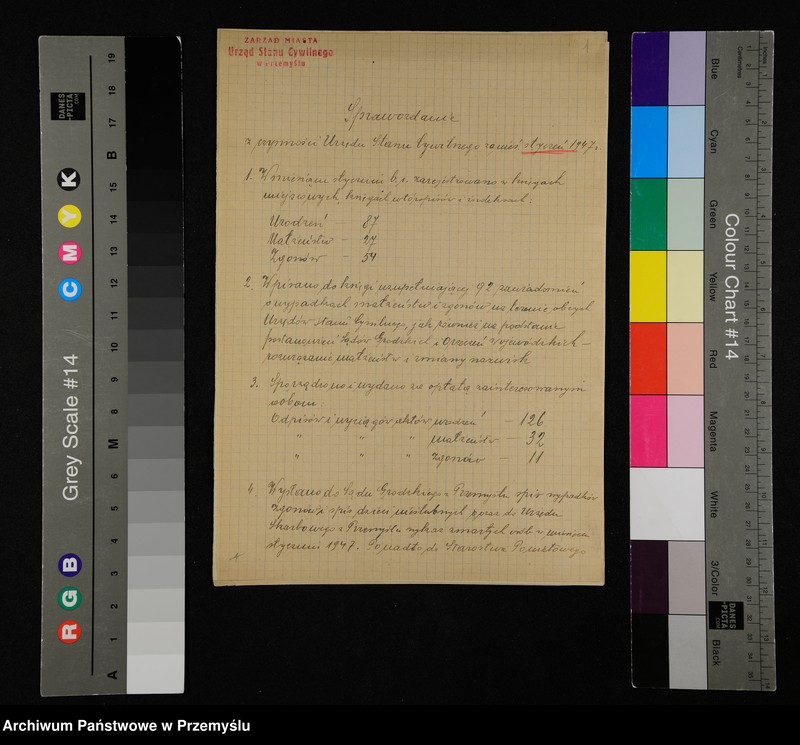 ZARZĄD MIASTA
Urząd Stanu Cywilnego
w Przemyślu
1
Sprawozdanie
z czynności Urzędu Stanu Cywilnego za mieś. styczeń 1947 r.
1. W miesiącu styczniu b.r. zarejestrowano w księgach
miejscowych, księgach wtóropisów i indeksach:
Urodzeń — 87
Małżeństw — 27
Zgonów — 54
2. Wpisano do księgi uzupełniającej 92 zawiadomień
o wypadkach małżeństw i zgonów na terenie obcych
Urzędów Stanu Cywilnego, jak również na podstawie
postanowień Sądów Grodzkich i Orzeń Wojewódzkich —
rozwiązanie małżeństw i zmiany nazwisk
3. Sporządzono i wydano za opłatą zainteresowanym
osobom:
Odpisów i wyciągów aktów urodzeń — 126
" " " małżeństw — 32
" " " zgonów — 11
4. Wysłano do Sądu Grodzkiego w Przemyślu spis wypadków
zgonów i spis dzieci nieślubnych, oraz do Urzędu
Skarbowego w Przemyślu wykaz zmarłych osób w miesiącu
styczniu 1947. Ponadto do Starostwa Powiatowego
Grey Scale #14
DANES
-PICTA
.COM
R G B
C M Y K
A 1 2 3 4 5 6 M 8 9 10 11 12 13 14 15 B 17 18 19
Colour Chart #14
Blue
Cyan
Green
Yellow
Red
Magenta
White
3/Color
Black
Centimetres
Inches
DANES
-PICTA
.COM
Archiwum Państwowe w Przemyślu